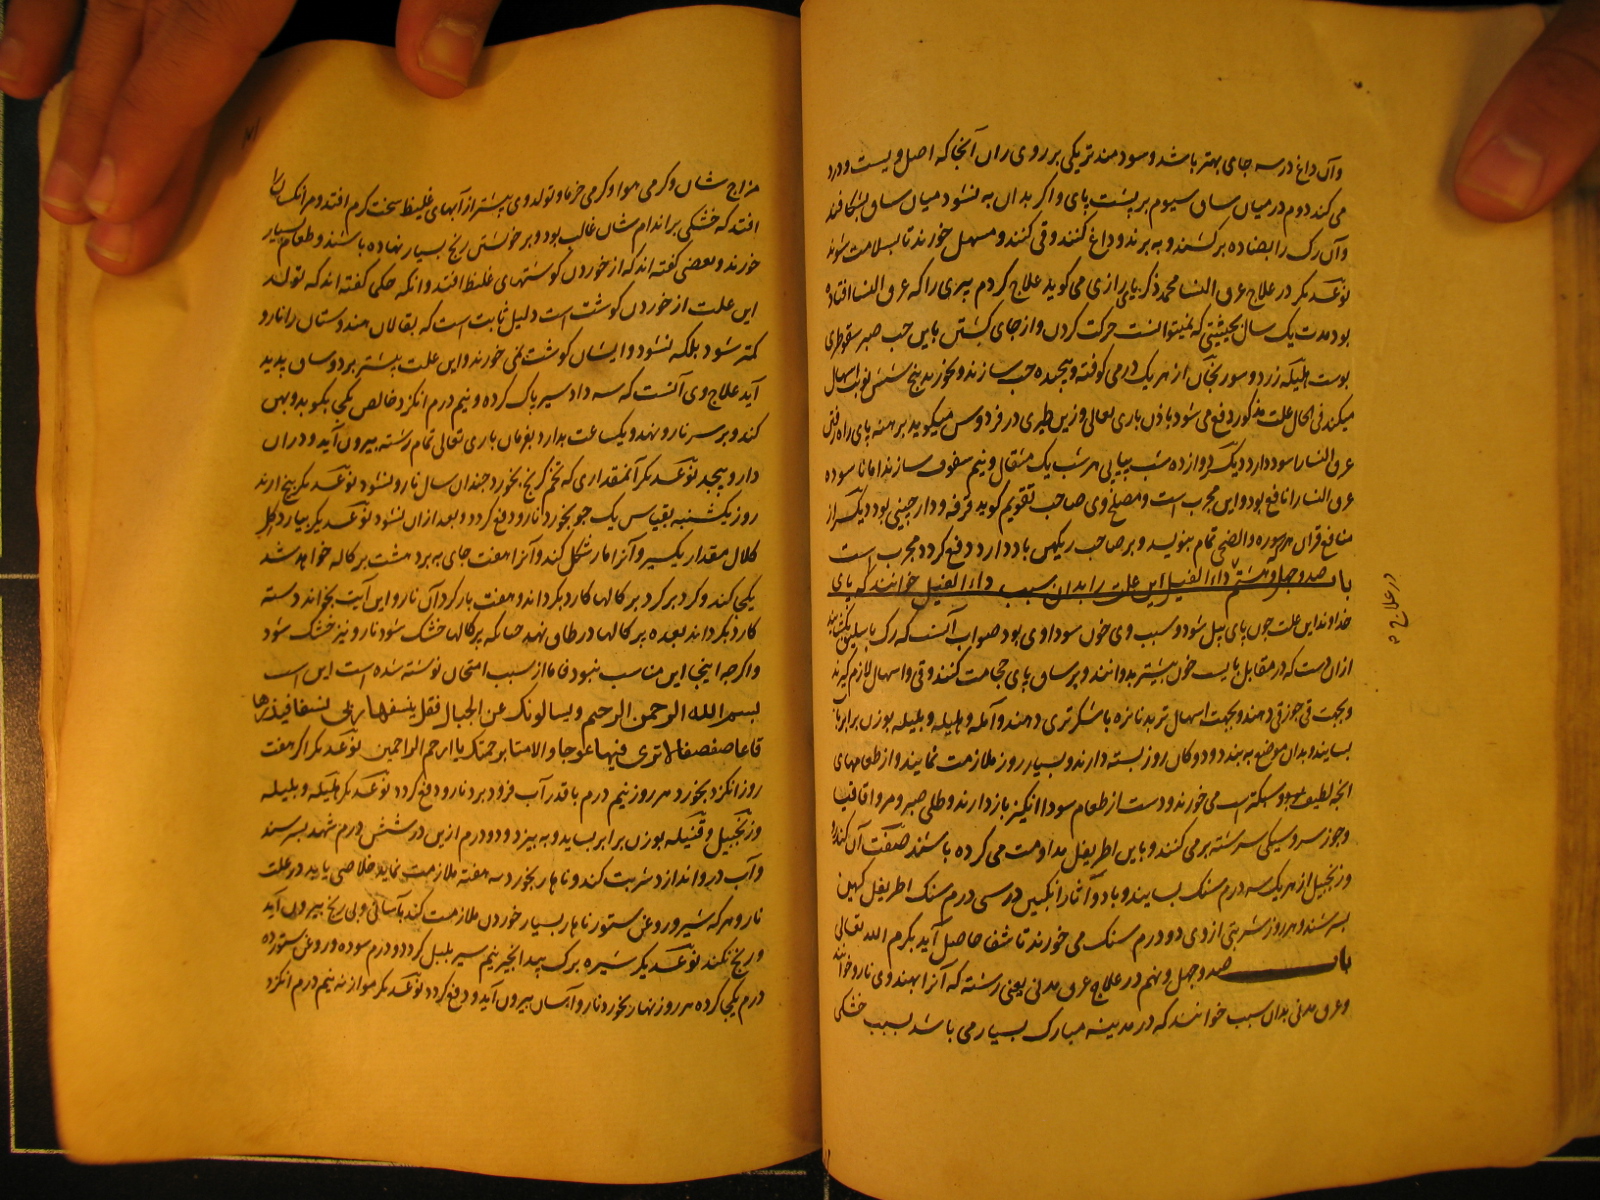 وآن داغ در سه جای بهتر باشد و سودمندتر یکی بر روی ران آنجا که اصل ویست و درد
می کند دوم در میان ساق سیوم بر پشت پای و اگر بدان به نشود میان ساق بشکافند
وآن رک را بصناده برکشند و به برند و داغ کنند و قی کنند و مسهل خورند تا بسلامت شوند
نوعدیکر در علاج عرق النسا محمد ذکریا رازی می کوید علاج کردم پیری را که عرق النسا افتاده
بود مدت یک سال بحیثیتی که نمیتوانست حرکت کردن و از جای کشتن باین حب صبر سقوطری
پوست هلیله زرد و سورنجان از هر یک درمی کوفته و بیخته حب سازند و بخورند پنج شش نوبت اسهال
میکند فی الحال علت مذکور دفع می شود باذن باری تعالی وزین طبری در فردوس میکوید برهنه پای راه رفتن
عرق النسا را سود دارد دیکر دوازده شب پیاپی هر شب یک مثقال و نیم سفوف سازند اما نا سوده
عرق النسا را نافع بود و این مجرب است و مصلح وی صاحب تقویم کوید قرفه و دارچینی بود دیکر از
منافع قرآن هر سوره والضحی تمام بنویسد و بر صاحب ریکهن باد دارد دفع کردد مجرب است
باب صد و چهل و هشتم داء الفیل این علت را بدان سبب داء الفیل خوانند که پای
در علاج
خداوند این علت چون پای پیل شود و سبب وی خون سوداوی بود صواب آنست که رک باسلیق بکشایند
ازان دست که در مقابل پایست خون بیشتر بدوانند و بر ساق پای حجامت کنند و قی و اسهال لازم کیرند
و بجهت قی جوز قی دهند و بجهت اسهال تربد تازه باشکر تری دهند و آمله و هلیله و بلیله بوزن برابر باز
بسایند و بدان موضع به بندد و دوکان روز بسته دارند و بسیار روز ملازمت نمایند و از طعامهای
انچه لطیف و سبکتر است می خورند و دست از طعام سودا انکیز باز دارند و طلی صبر و مر و اقاقیا
و جوز سرو بسیکی سرشته بر می کنند و باین اطریفل مداومت می کرده باشند صفت آن کندر
وزنجبیل از هر یک سه درم سنک بسایند و با دو آثار انکبین و سی درم سنک اطریفل کهین
بسرشند و هر روز شربتی از وی دو درم سنک می خورند تا شفا حاصل آید بکرم الله تعالی
باب صد و چهل و نهم در علاج عرق مدنی یعنی رشته که آنرا بهندوی نارو خوانند
و عرق مدنی بدان سبب خوانند که در مدینه مبارک بسیار می باشد بسبب خشکی
مزاج شان و کرمی هوا و کرمی خرما و تولد وی بیشتر از آبهای غلیظ سخت کرم افتد و مر آنکسان را
افتد که خشکی بر اندام شان غالب بود و بر خویشتن رنج بسیار نهاده باشند و طعام بسیار
خورند و بعضی کفته اند که از خوردن کوشتهای غلیظ افتد و آنکه حکی کفته اند که تولد
این علت از خوردن کوشت است دلیل ثابت است که بقالان هندوستان را نارو
کمتر شود بلکه نشود و ایشان کوشت نمی خورند و این علت بیشتر بر دو ساق پدید
آید علاج وی آنست که سه داد سیر پاک کرده و نیم درم انکزد خالص یکجی بکوبد و پهن
کند و بر سر نارو نهد و یکساعت بدارد بفرمان باری تعالی تمام رشته بیرون آید و در آن
دارو پیچد نوعدیکر آنمقداری که تخم کرنج بخورد چندان سال نارو نشود نوعدیکر بیخ ارند
روز یکشنبه بقیاس یک جو بخورد نارو دفع کردد و بعد ازان نشود نوعدیکر بیارد کل
کلال مقدار یکسیر و آنرا مار شکل کند و آنرا هفت جای به برد هشت پرکاله خواهد شد
یکجی کند و کرد بر کرد پرکالها کارد بکرداند و هفت بار کرد آن نارو این آیت بخواند دسته
کارد بکرداند بعده پرکالها در طاق نهد چنانکه پرکالها خشک شود نارو نیز خشک شود
و اکرچه اینجا این مناسب نبود فاما از سبب امتحان نوشته شده است این است
بسم الله الرحمن الرحیم ویسالونک عن الجبال فقل ینسفها ربی نسفا فیذرها
قاعا صفصفا لا تری فیها عوجا ولا امتا برحمتک یا ارحم الراحمین نوعدیکر اکر هفت
روز انکزد بخورد هر روز نیم درم با قدر آب فرو برد نارو دفع کردد نوعدیکر هلیله و بلیله
وزنجبیل و قنبیله بوزن برابر بساید و به بیزد و دو درم ازین در شش درم شهد بسرشد
و آب درو اندازد شربت کند و ناهار بخورد سه هفته ملازمت نماید خلاصی یابد در علت
نارو هر که شیر و روغن ستور ناهار بسیار خوردن ملازمت کند بآسانی و بی رنج بیرون آید
و رنج نکند نوعدیکر شیره برک بید انجیر نیم سیر بلبل کرد دو درم سوده و روغن ستور ده
درم یکجا کرده هر روز نهار بخورد نارو آسان بیرون آید و دفع کردد نوعدیکر موازنه نیم درم انکزد